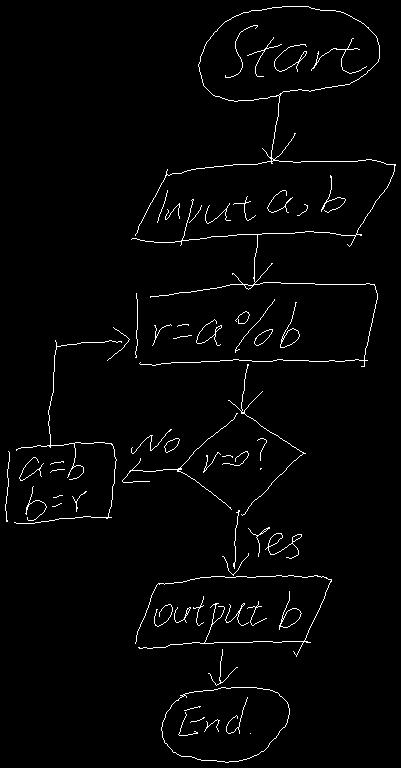 Start
Input a, b
r=a%b
No
r=0?
a=b
b=r
Yes
output b
End